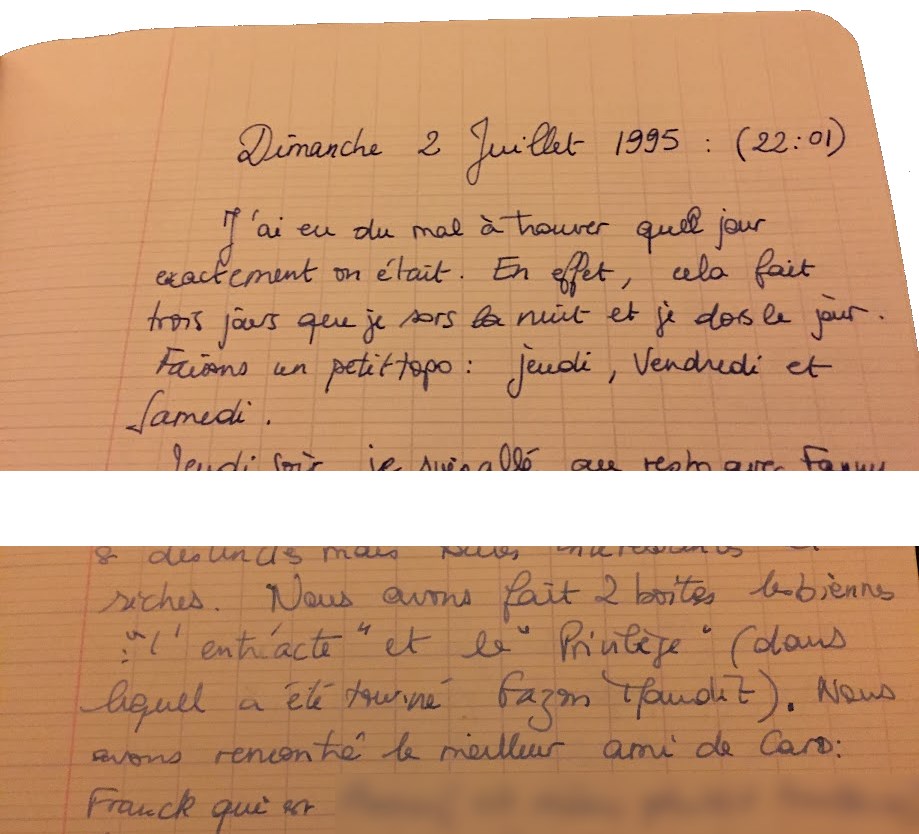 Dimanche 2 Juillet 1995 : (22:01)
J'ai eu du mal à trouver quel jour
exactement on était. En effet, cela fait
trois jours que je sors la nuit et je dors le jour.
Faisons un petit topo : jeudi, Vendredi et
Samedi.
Jeudi soir je suis allé au resto avec Fanny
& destinés mais
riches. Nous avons fait 2 boîtes lesbiennes
: "l'entr'acte" et le "Privilège" (dans
lequel a été tourné Gazon Maudit). Nous
avons rencontré le meilleur ami de Caro:
Franck qui est